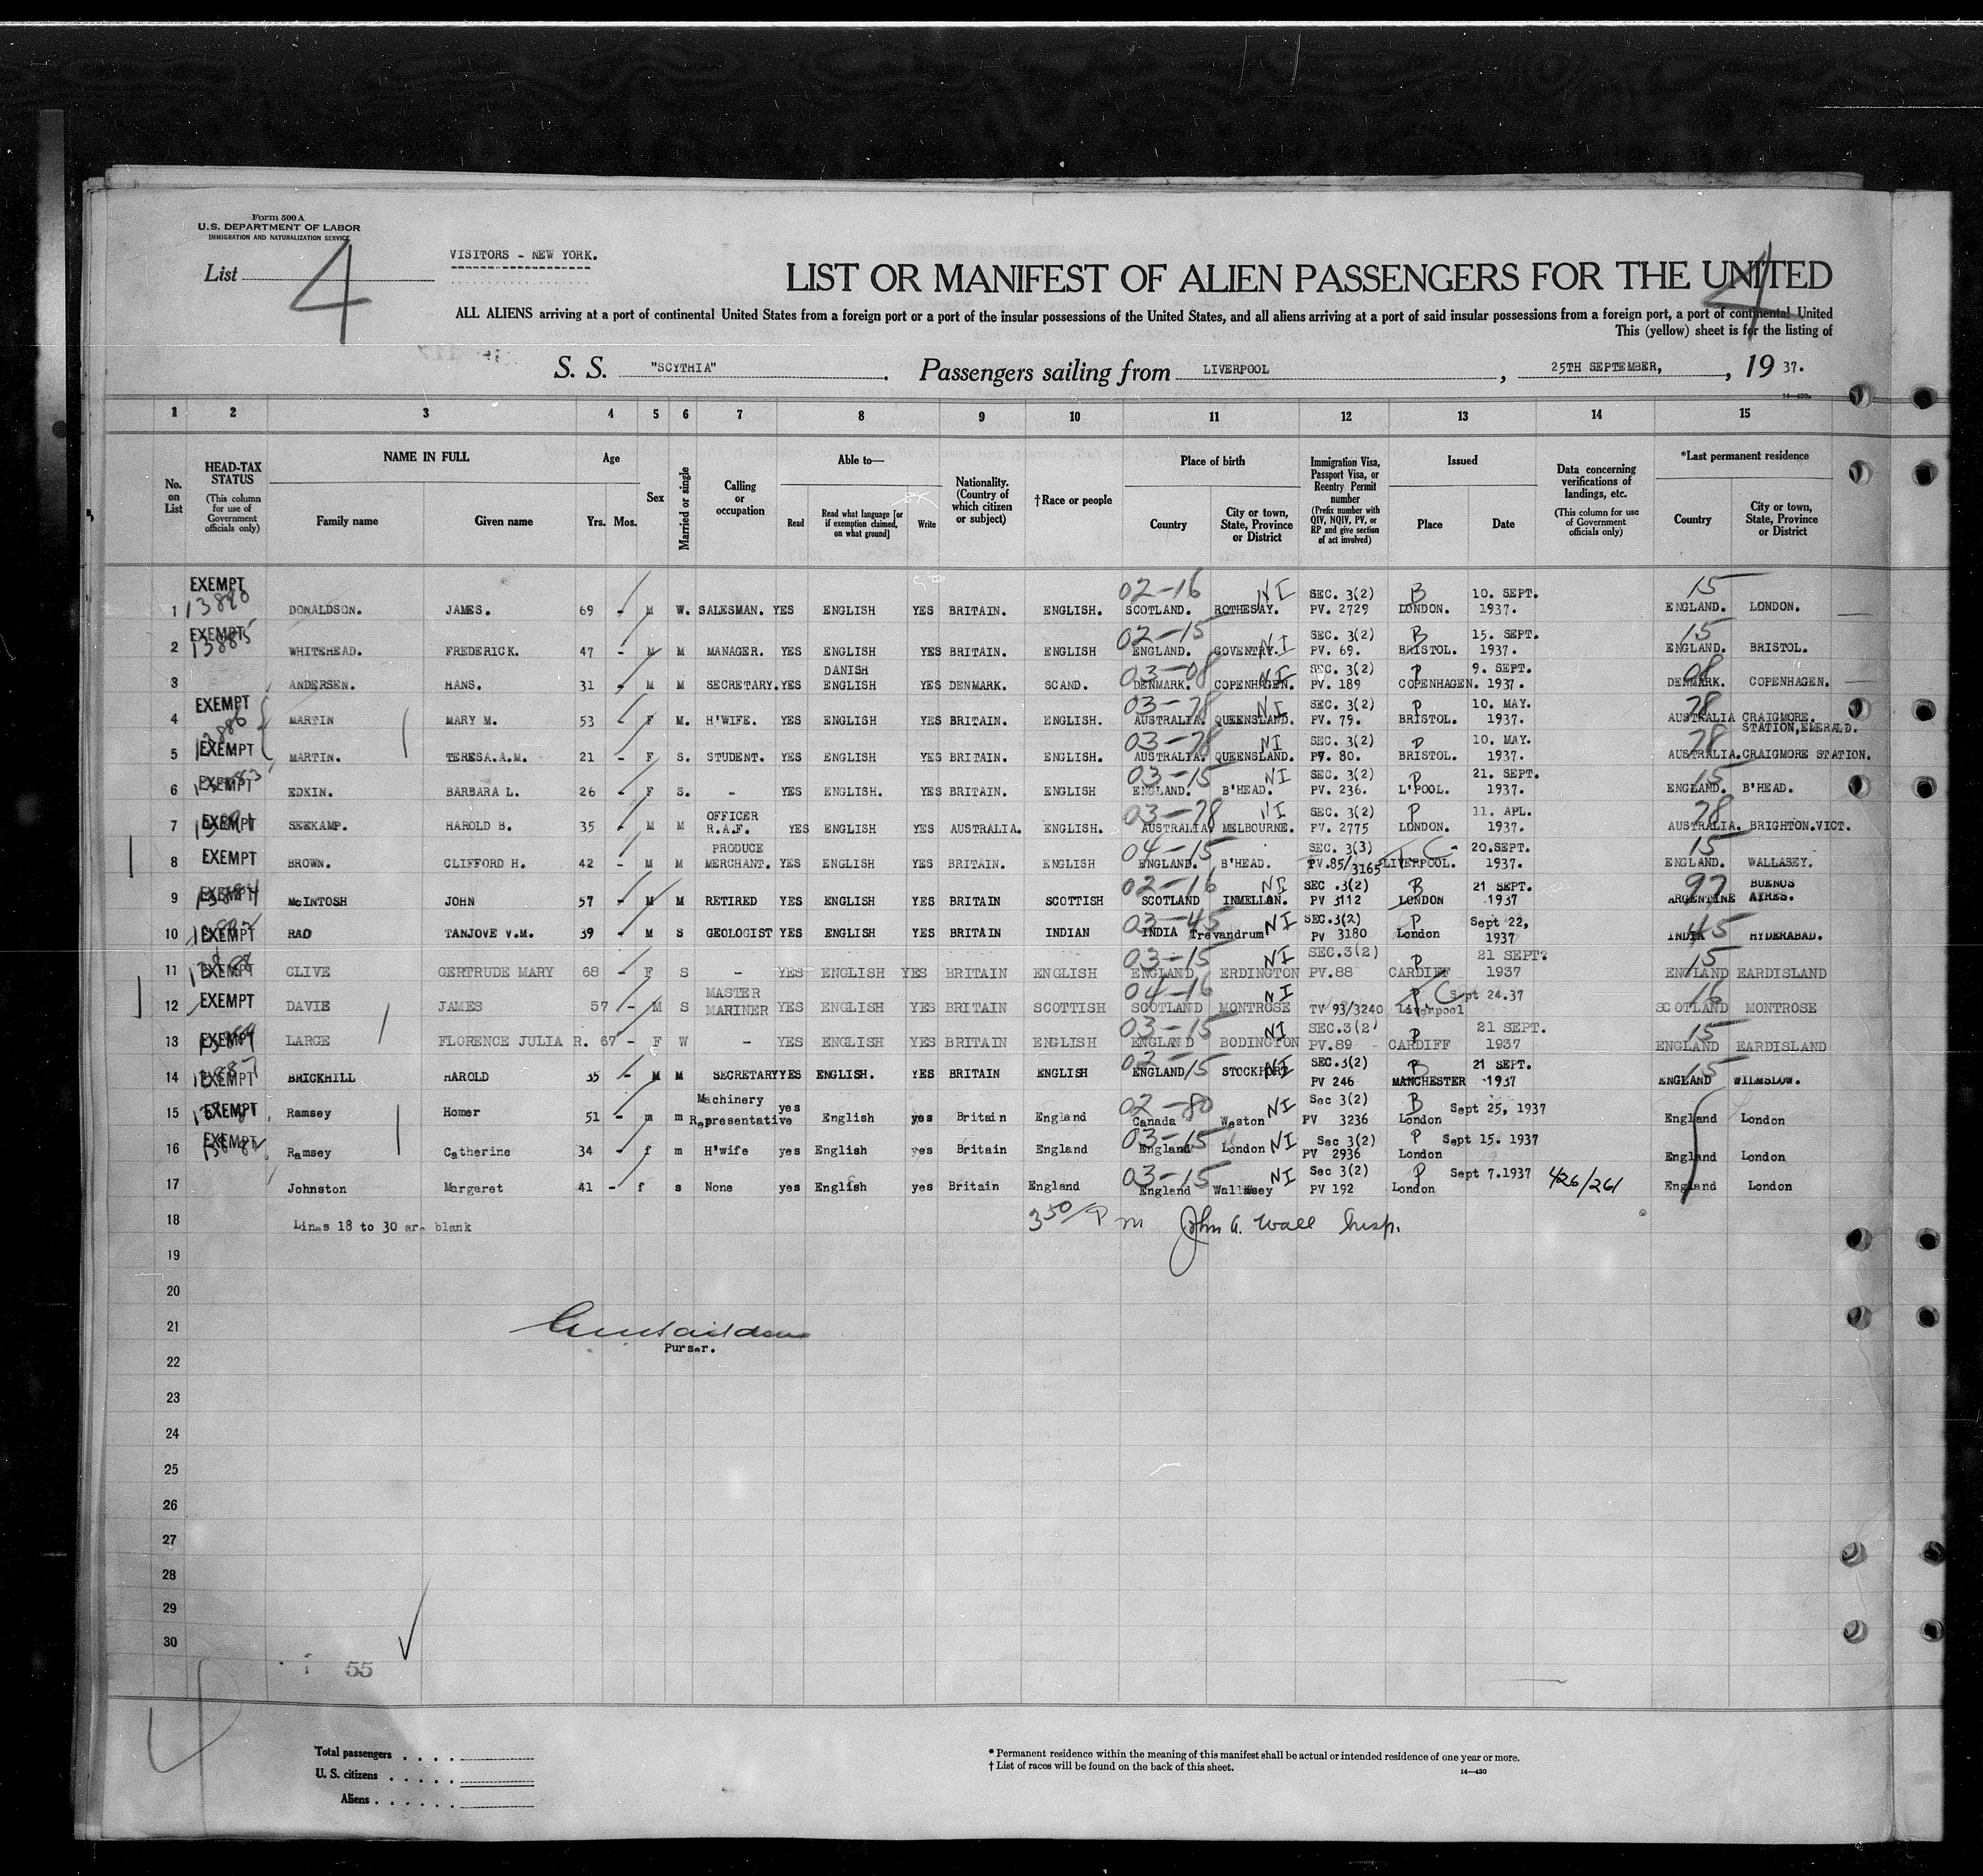 Form 500 A
U.S. DEPARTMENT OF LABOR
IMMIGRATION AND NATURALIZATION SERVICE
List 4
VISITORS - NEW YORK.
LIST OR MANIFEST OF ALIEN PASSENGERS FOR THE UNITED
4
ALL ALIENS arriving at a port of continental United States from a foreign port or a port of the insular possessions of the United States, and all aliens arriving at a port of said insular possessions from a foreign port, a port of continental United
This (yellow) sheet is for the listing of
S. S. "SCYTHIA". Passengers sailing from LIVERPOOL, 25TH SEPTEMBER, , 19 37.
14—430a
1 2 3 4 5 6 7 8 9 10 11 12 13 14 15
No. on List
HEAD-TAX STATUS (This column for use of Government officials only)
NAME IN FULL Family name Given name
Age Yrs. Mos.
Sex
Married or single
Calling or occupation
Able to— Read Read what language [or if exemption claimed, on what ground] Write
Nationality. (Country of which citizen or subject)
†Race or people
Place of birth Country City or town, State, Province or District
Immigration Visa, Passport Visa, or Reentry Permit number (Prefix number with QIV, NQIV, PV, or RP and give section of act involved)
Issued Place Date
Data concerning verifications of landings, etc. (This column for use of Government officials only)
*Last permanent residence Country City or town, State, Province or District
1 EXEMPT 13880 DONALDSON. JAMES. 69 - M W. SALESMAN. YES ENGLISH YES BRITAIN. ENGLISH. 02-16 SCOTLAND. ROTHESAY. NI SEC. 3(2) PV. 2729 B LONDON. 10. SEPT. 1937. 15 ENGLAND. LONDON.
2 EXEMPT 13885 WHITEHEAD. FREDERICK. 47 - M M MANAGER. YES ENGLISH YES BRITAIN. ENGLISH 02-15 ENGLAND. COVENTRY. NI SEC. 3(2) PV. 69. B BRISTOL. 15. SEPT. 1937. 15 ENGLAND. BRISTOL.
3 ANDERSEN. HANS. 31 - M M SECRETARY. YES DANISH ENGLISH YES DENMARK. SCAND. 03-08 DENMARK. COPENHAGEN. NI SEC. 3(2) PV. 189 P COPENHAGEN. 9. SEPT. 1937. 08 DENMARK. COPENHAGEN.
4 EXEMPT MARTIN MARY M. 53 - F M. H'WIFE. YES ENGLISH YES BRITAIN. ENGLISH. 03-78 AUSTRALIA. QUEENSLAND. NI SEC. 3(2) PV. 79. P BRISTOL. 10. MAY. 1937. 78 AUSTRALIA CRAIGMORE. STATION, EMERALD.
5 EXEMPT 13886 MARTIN. TERESA.A.M. 21 - F S. STUDENT. YES ENGLISH YES BRITAIN. ENGLISH. 03-78 AUSTRALIA. QUEENSLAND. NI SEC. 3(2) PV. 80. P BRISTOL. 10. MAY. 1937. 78 AUSTRALIA. CRAIGMORE STATION.
6 EXEMPT EDKIN. BARBARA L. 26 - F S. - YES ENGLISH. YES BRITAIN. ENGLISH 03-15 ENGLAND. B'HEAD. NI SEC. 3(2) PV. 236. P L'POOL. 21. SEPT. 1937. 15 ENGLAND. B'HEAD.
7 EXEMPT SEEKAMP. HAROLD B. 35 - M M OFFICER R.A.F. YES ENGLISH YES AUSTRALIA. ENGLISH. 03-78 AUSTRALIA. MELBOURNE. NI SEC. 3(2) PV. 2775 P LONDON. 11. APL. 1937. 78 AUSTRALIA. BRIGHTON.VICT.
8 EXEMPT BROWN. CLIFFORD H. 42 - M M PRODUCE MERCHANT. YES ENGLISH YES BRITAIN. ENGLISH 04-15 ENGLAND. B'HEAD. SEC. 3(3) TV.85/3165 LIVERPOOL. C 20.SEPT. 1937. 15 ENGLAND. WALLASEY.
9 EXEMPT McINTOSH JOHN 57 - M M RETIRED YES ENGLISH YES BRITAIN SCOTTISH 02-16 SCOTLAND INMELLAN. NI SEC .3(2) PV 3112 B LONDON 21 SEPT. 1937 97 ARGENTINE BUENOS AYRES.
10 EXEMPT RAO TANJOVE V.M. 39 - M S GEOLOGIST YES ENGLISH YES BRITAIN INDIAN 03-45 INDIA Trevandrum NI SEC.3(2) PV 3180 P London Sept 22, 1937 45 INDIA HYDERABAD.
11 EXEMPT CLIVE GERTRUDE MARY 68 - F S - YES ENGLISH YES BRITAIN ENGLISH 03-15 ENGLAND ERDINGTON NI SEC.3(2) PV.88 P CARDIFF 21 SEPT? 1937 15 ENGLAND EARDISLAND
12 EXEMPT DAVIE JAMES 57 - M S MASTER MARINER YES ENGLISH YES BRITAIN SCOTTISH 04-16 SCOTLAND MONTROSE NI TV 93/3240 Liverpool C Sept 24.37 16 SCOTLAND MONTROSE
13 EXEMPT LARGE FLORENCE JULIA R. 67 - F W - YES ENGLISH YES BRITAIN ENGLISH 03-15 ENGLAND BODINGTON NI SEC.3(2) PV.89 - P CARDIFF 21 SEPT. 1937 15 ENGLAND EARDISLAND
14 EXEMPT BRICKHILL HAROLD 35 - M M SECRETARY YES ENGLISH. YES BRITAIN ENGLISH 02-15 ENGLAND STOCKPORT NI SEC.3(2) PV 246 B MANCHESTER 21 SEPT. 1937 15 ENGLAND WILMSLOW.
15 EXEMPT Ramsey Homer 51 - m m Machinery Representative yes English yes Britain England 02-80 Canada Weston NI Sec 3(2) PV 3236 B London Sept 25, 1937 England London
16 EXEMPT 13882 Ramsey Catherine 34 - f m H'wife yes English yes Britain England 03-15 England London NI Sec 3(2) PV 2936 P London Sept 15. 1937 England London
17 Johnston Margaret 41 - f s None yes English yes Britain England 03-15 England Wallasey NI Sec 3(2) PV 192 P London Sept 7.1937 426/261 England London
18 Lines 18 to 30 are blank 3 50/P m John A. Wall Insp.
19
20
21
Purser.
22
23
24
25
26
27
28
29
30
55
4
Total passengers . . . .
U. S. citizens . . . . .
Aliens . . . . . .
* Permanent residence within the meaning of this manifest shall be actual or intended residence of one year or more.
† List of races will be found on the back of this sheet.
14—430